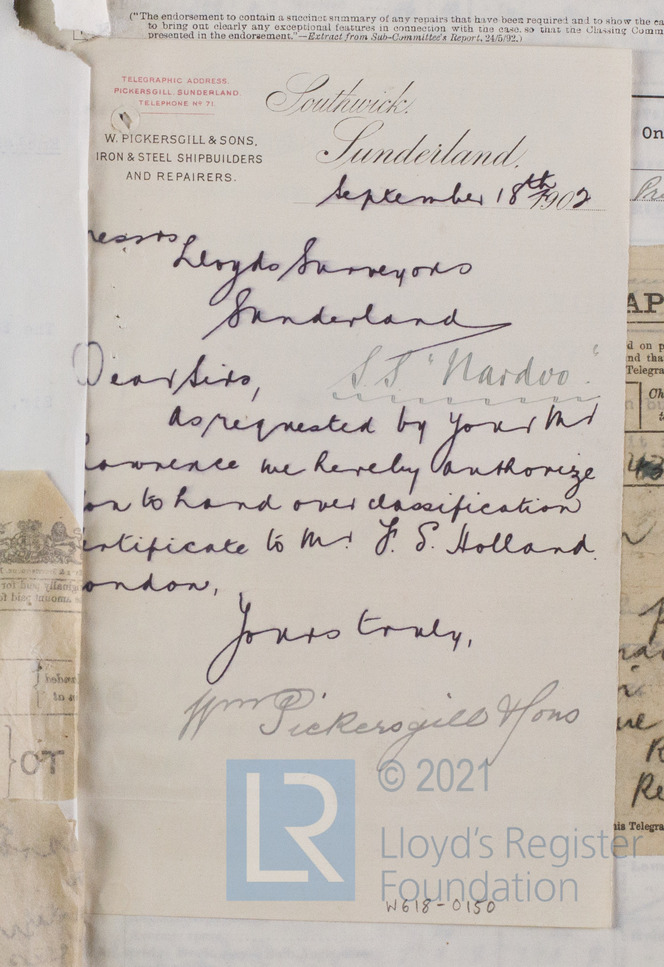 ("The endorsement to contain a succinct summary of any repairs that have been required and to show the ca
to bring out clearly any exceptional features in connection with the case, so that the Classing Comm
presented in the endorsement."—Extract from Sub-Committee's Report, 24/5/92.)
TELEGRAPHIC ADDRESS.
PICKERSGILL. SUNDERLAND.
TELEPHONE No 71.
W. PICKERSGILL & SONS,
IRON & STEEL SHIPBUILDERS
AND REPAIRERS.
Southwick.
Sunderland.
September 18th 1902
essrs
Lloyds Surveyors
Sunderland
Dear Sirs,
S.S "Nardoo".
As requested by your Mr
awrence we hereby authorize
ou to hand over classification
ertificate to Mr. F. S. Holland.
ondon,
Yours truly,
Wm Pickersgill & Sons
© 2021
LR
Lloyd's Register
Foundation
W618-0150
On
AP
d on p
nd tha
Telegra
Ch
to
43
his Telegra